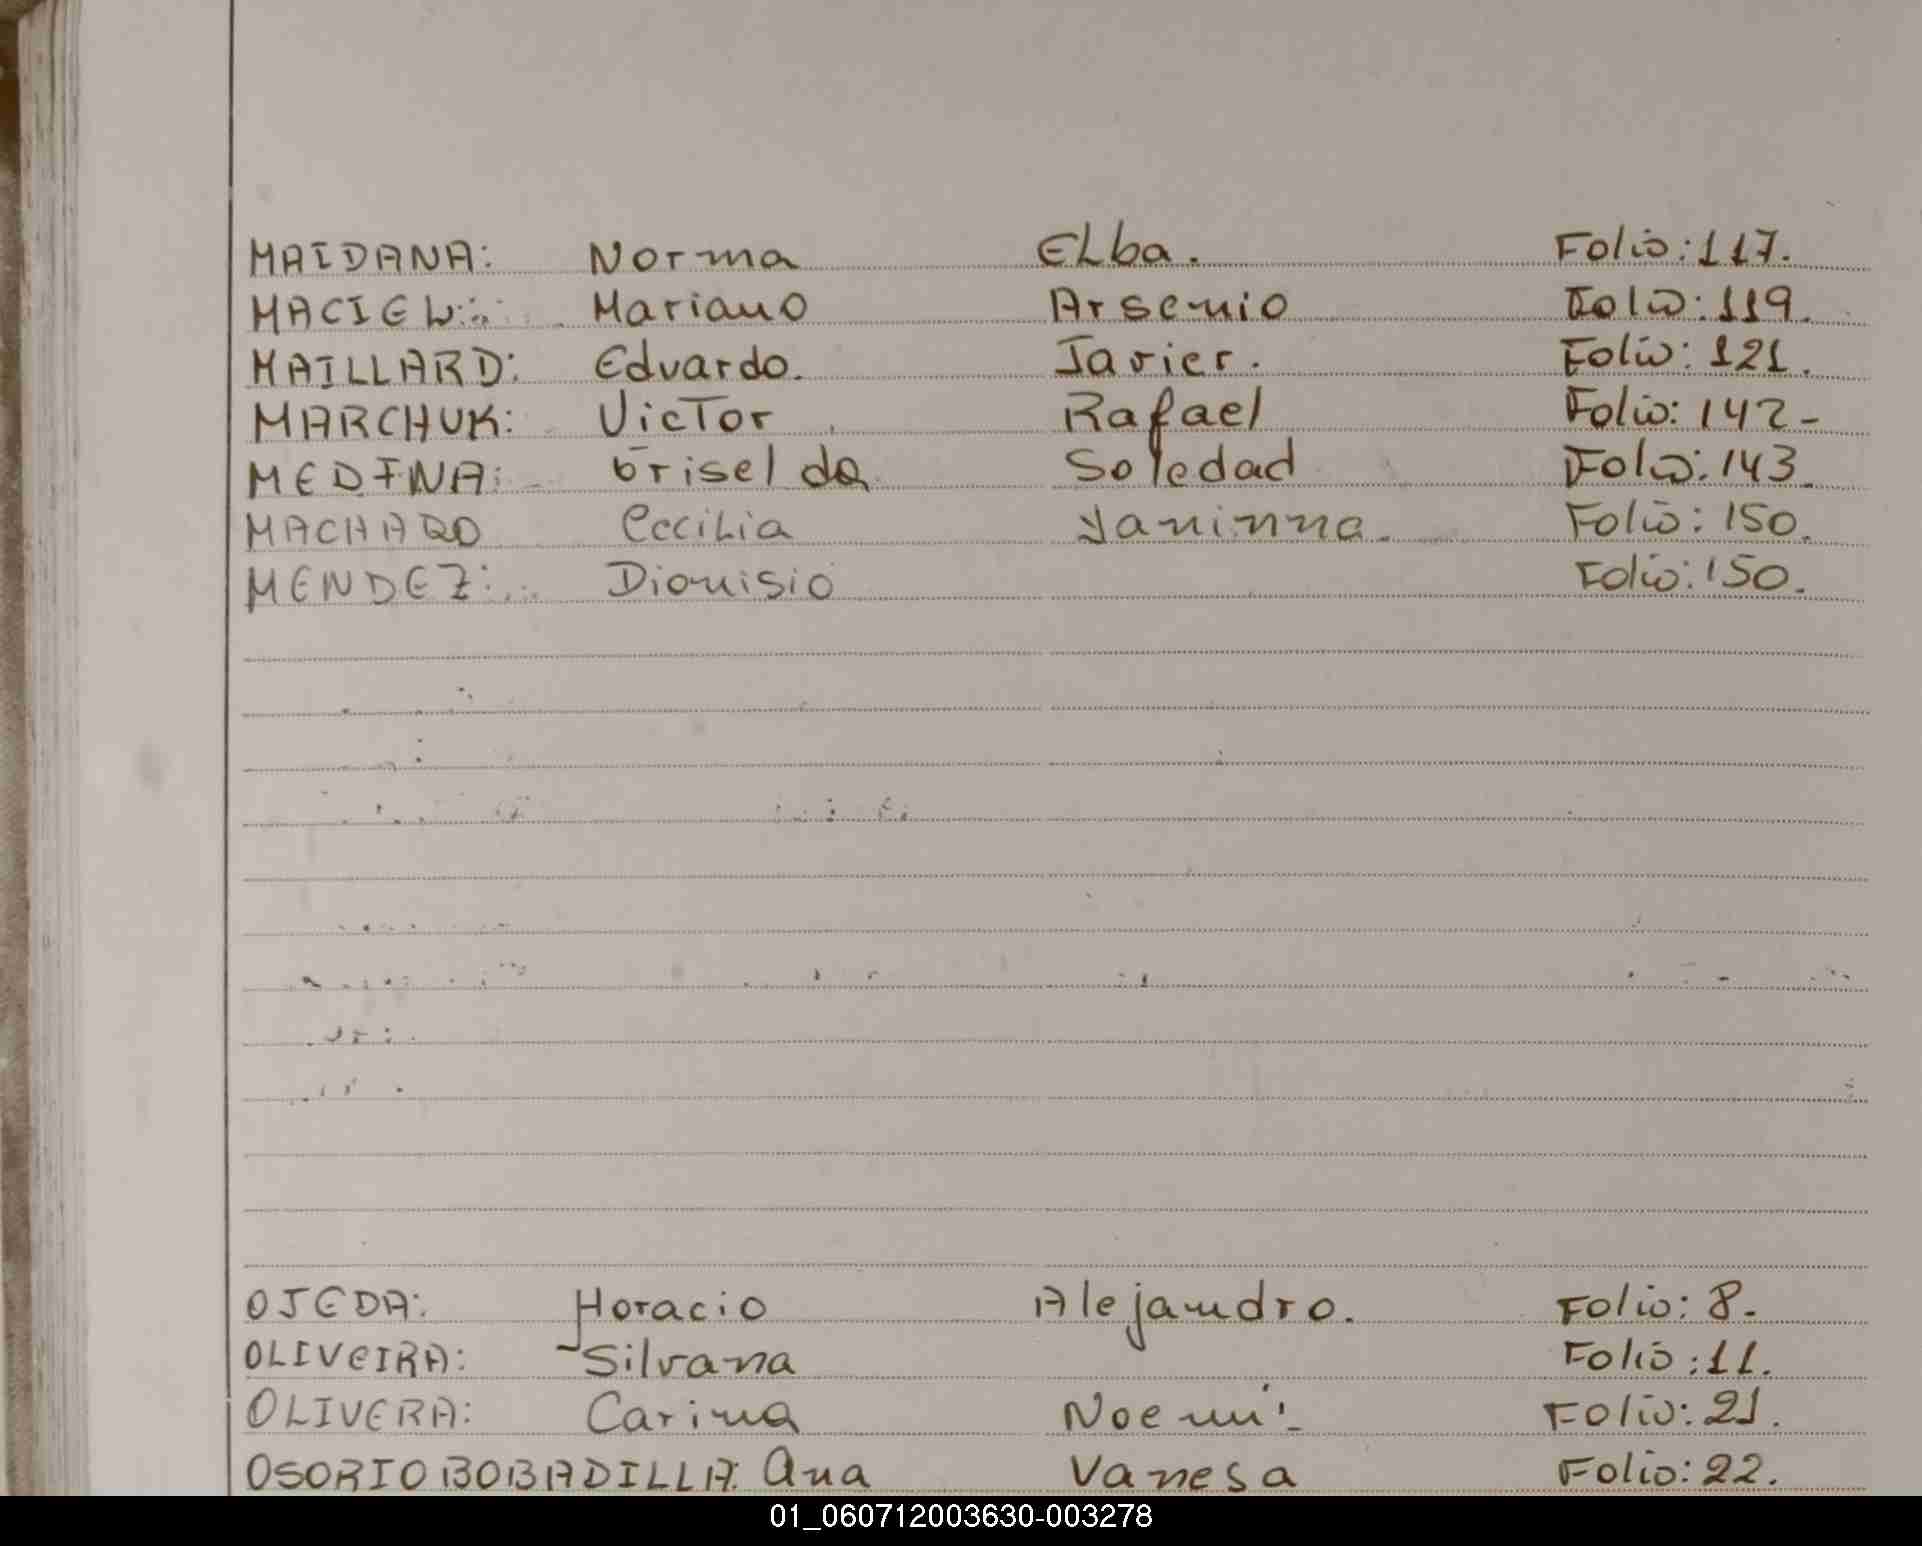 MAIDANA: Norma ELba. Folio: 117.
MACIEL: Mariano Arsenio Folio: 119.
MAILLARD: Eduardo. Javier. Folio: 121.
MARCHUK: Victor Rafael Folio: 142-
MEDINA: Griselda Soledad Folio: 143.
MACHADO Cecilia Yaninna. Folio: 150.
MENDEZ: Dionisio Folio: 150.
OJEDA: Horacio Alejandro. Folio: 8.
OLIVEIRA: Silvana Folio: 11.
OLIVERA: Carina Noemi Folio: 21.
OSORIO BOBADILLA: Ana Vanesa Folio: 22.
01_060712003630-003278